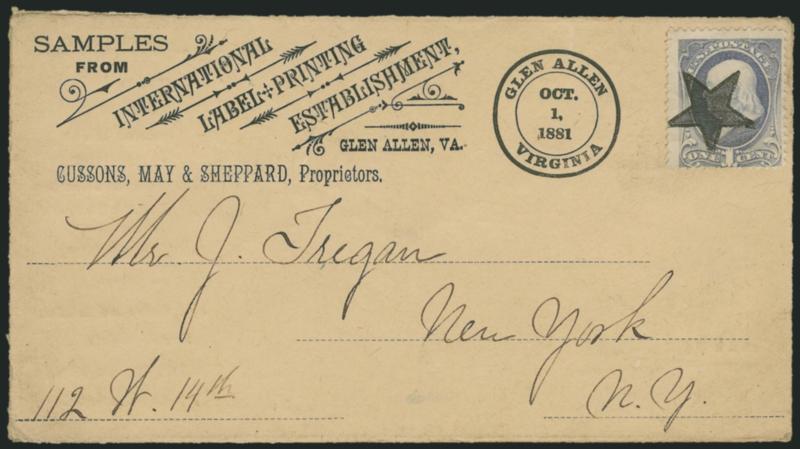 SAMPLES
FROM
INTERNATIONAL
LABEL & PRINTING
ESTABLISHMENT,
GLEN ALLEN, VA.
CUSSONS, MAY & SHEPPARD, Proprietors.
GLEN ALLEN
OCT.
1,
1881
VIRGINIA
U.S. POSTAGE
ONE CENT
Mr. J. Tregan
New York
112 W. 14th
N.Y.